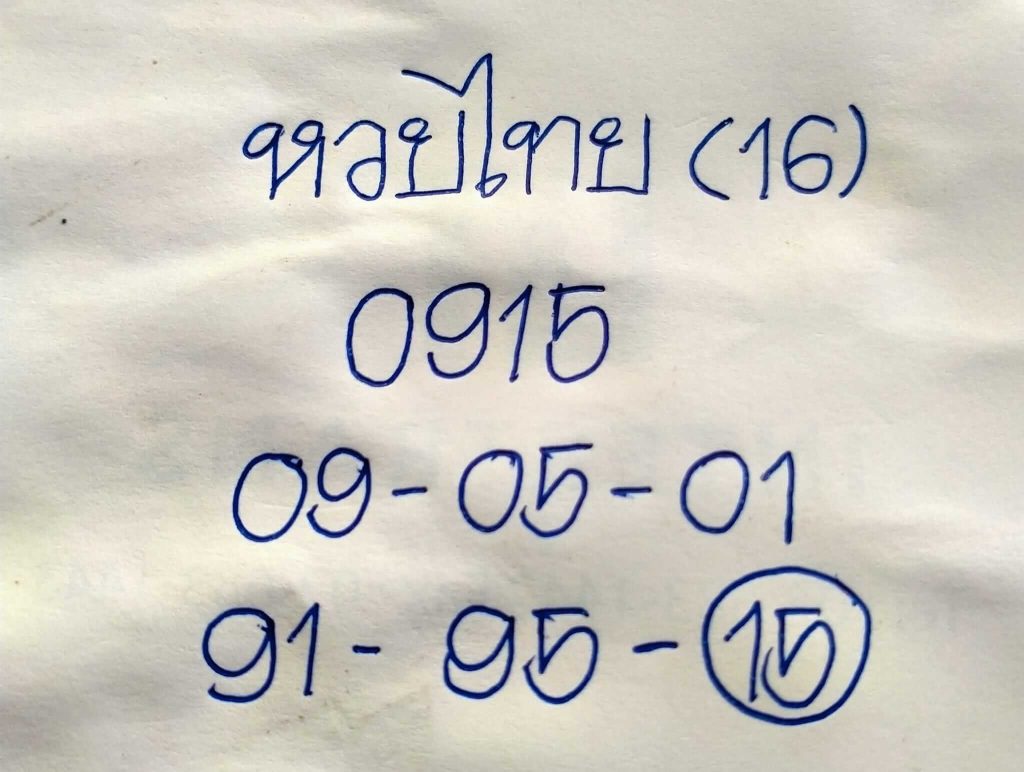 หวยไทย (16)
0915
09-05-01
91-95-15